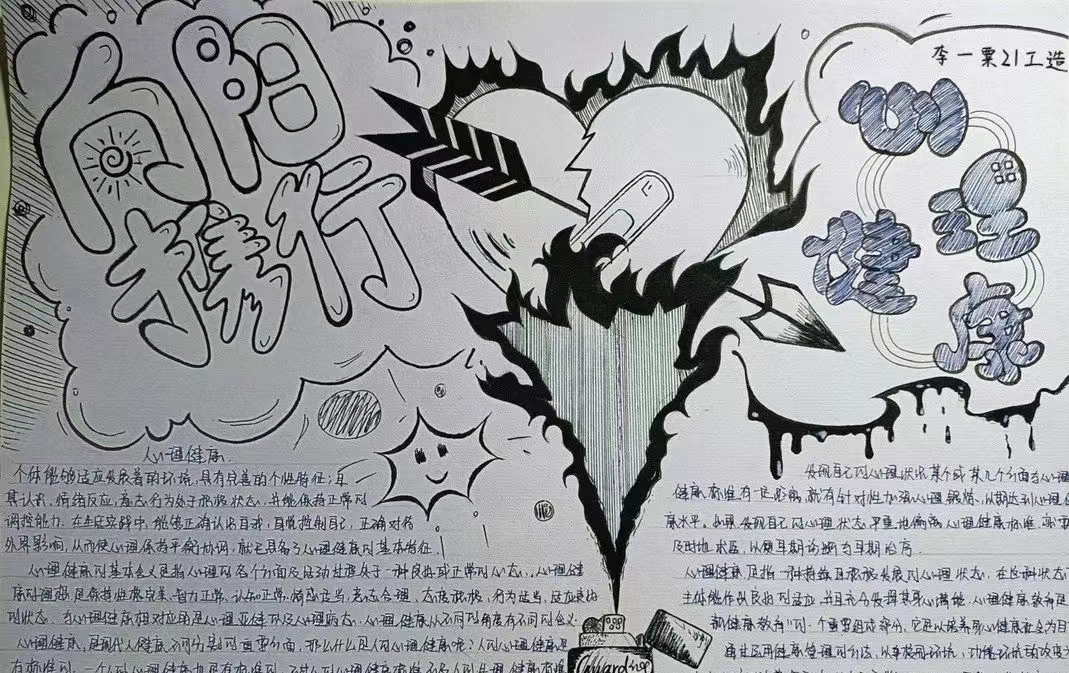 向阳
携行
李一粟21工造
心理
健康
心理健康.
个体能够适应发展着的环境,具有完善的个性特征;且
其认识、情绪反应、意志行为处于积极状态,并能保持正常的
调控能力.在生活实践中,能够正确认识自我,自觉控制自己,正确对待
外界影响,从而使心理保持平衡协调,就已具备了心理健康的基本特征.
心理健康的基本含义是指心理的各个方面及活动过程处于一种良好或正常的状态.心理健
康的理想状态是保持性格完美、智力正常、认知正确、情感适当、意志合理、态度积极、行为恰当、适应良好
的状态.与心理健康相对应的是心理亚健康以及心理病态.心理健康从不同的角度有不同的含义
心理健康,是现代人健康不可分割的重要方面,那么什么是人的心理健康呢?人的心理健康是
发现自己的心理状况某个或某几个方面与心理
健康标准有一定距离,就有针对性加强心理锻炼,以期达到心理健
康水平.如果发现自己的心理状态严重地偏离心理健康标准,就要
及时地求医,以便早期诊断与早期治疗.
心理健康是指一种持续且积极发展的心理状态,在这种状态下
主体能作出良好的适应,并且充分发挥其身心潜能.心理健康教育是
"健康教育"的一个重要组成部分,